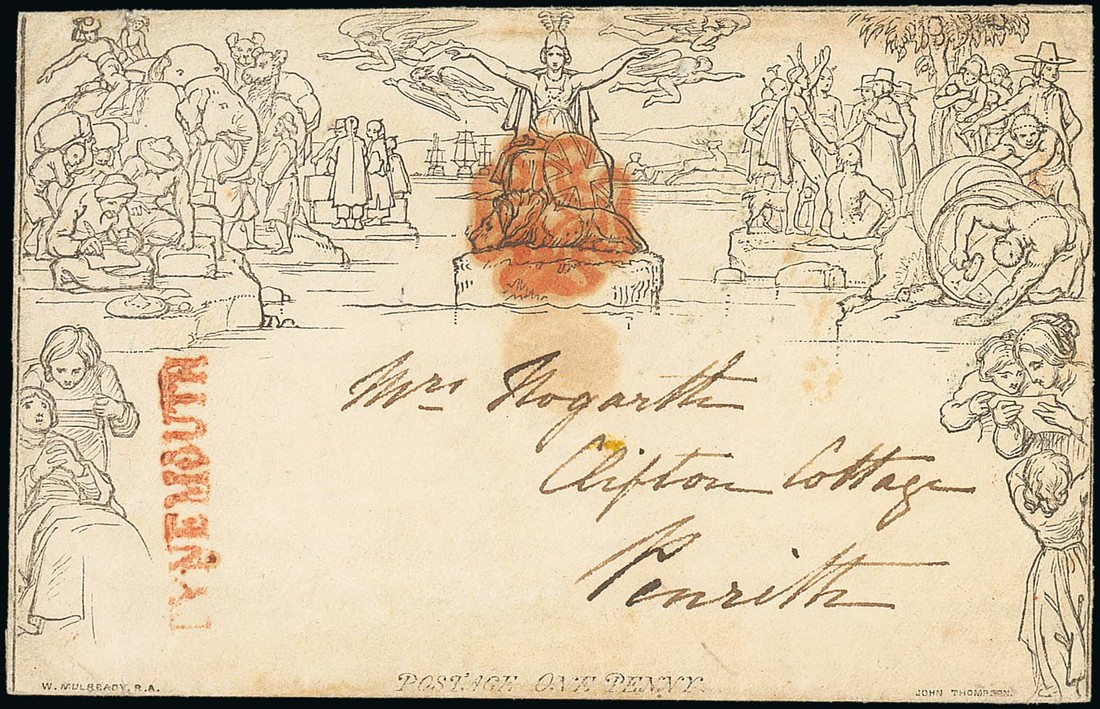 Mrs Hogarth
Clifton Cottage
Penrith
TYNEMOUTH
POSTAGE ONE PENNY.
W. MULREADY, R.A.
JOHN THOMPSON.